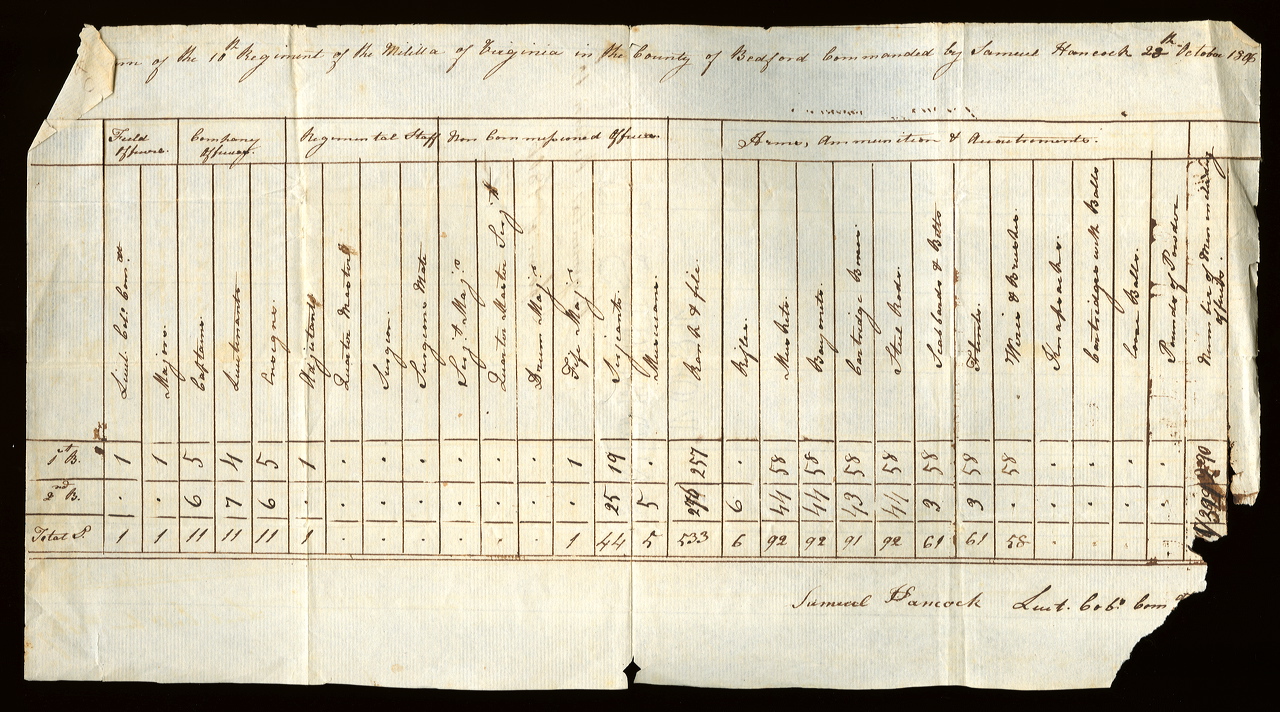 rn of the 10th Regiment of the Militia of Virginia in the County of Bedford Commanded by Samuel Hancock 28th October 180
Field Officers. Company Officers. Regimental Staff Non Commissioned Officers Arms, Ammunition & Accoutrements.
Lieut. Col. Comdt Majors. Captains Lieutenants Ensigns. Adjutant Quarter Master Surgeon. Surgeons Mate Sergt Majrs Quarter Master Sergt Drum Majrs Fife Majrs Serjeants. Musicians. Rank & file. Rifles. Muskets. Bayonets. Cartridge Boxes. Steel Rods. Scabbards & Belts Flints. Wires & Brushes. Knapsacks. Cartridges with Balls Loose Balls. Pounds of Powder Number of Men
1st B. 1 1 5 4 5 1 . . . . . . 1 19 . 257 . 58 58 58 58 58 58 58 . . . .
2nd B. . . 6 7 6 . . . . . . . . 25 5 6 44 44 43 44 3 3 . . . . .
Total S. 1 1 11 11 11 1 . . . . . . 1 44 5 533 6 92 92 91 92 61 61 58 . . . .
Samuel Hancock Lieut. Col. Comdt